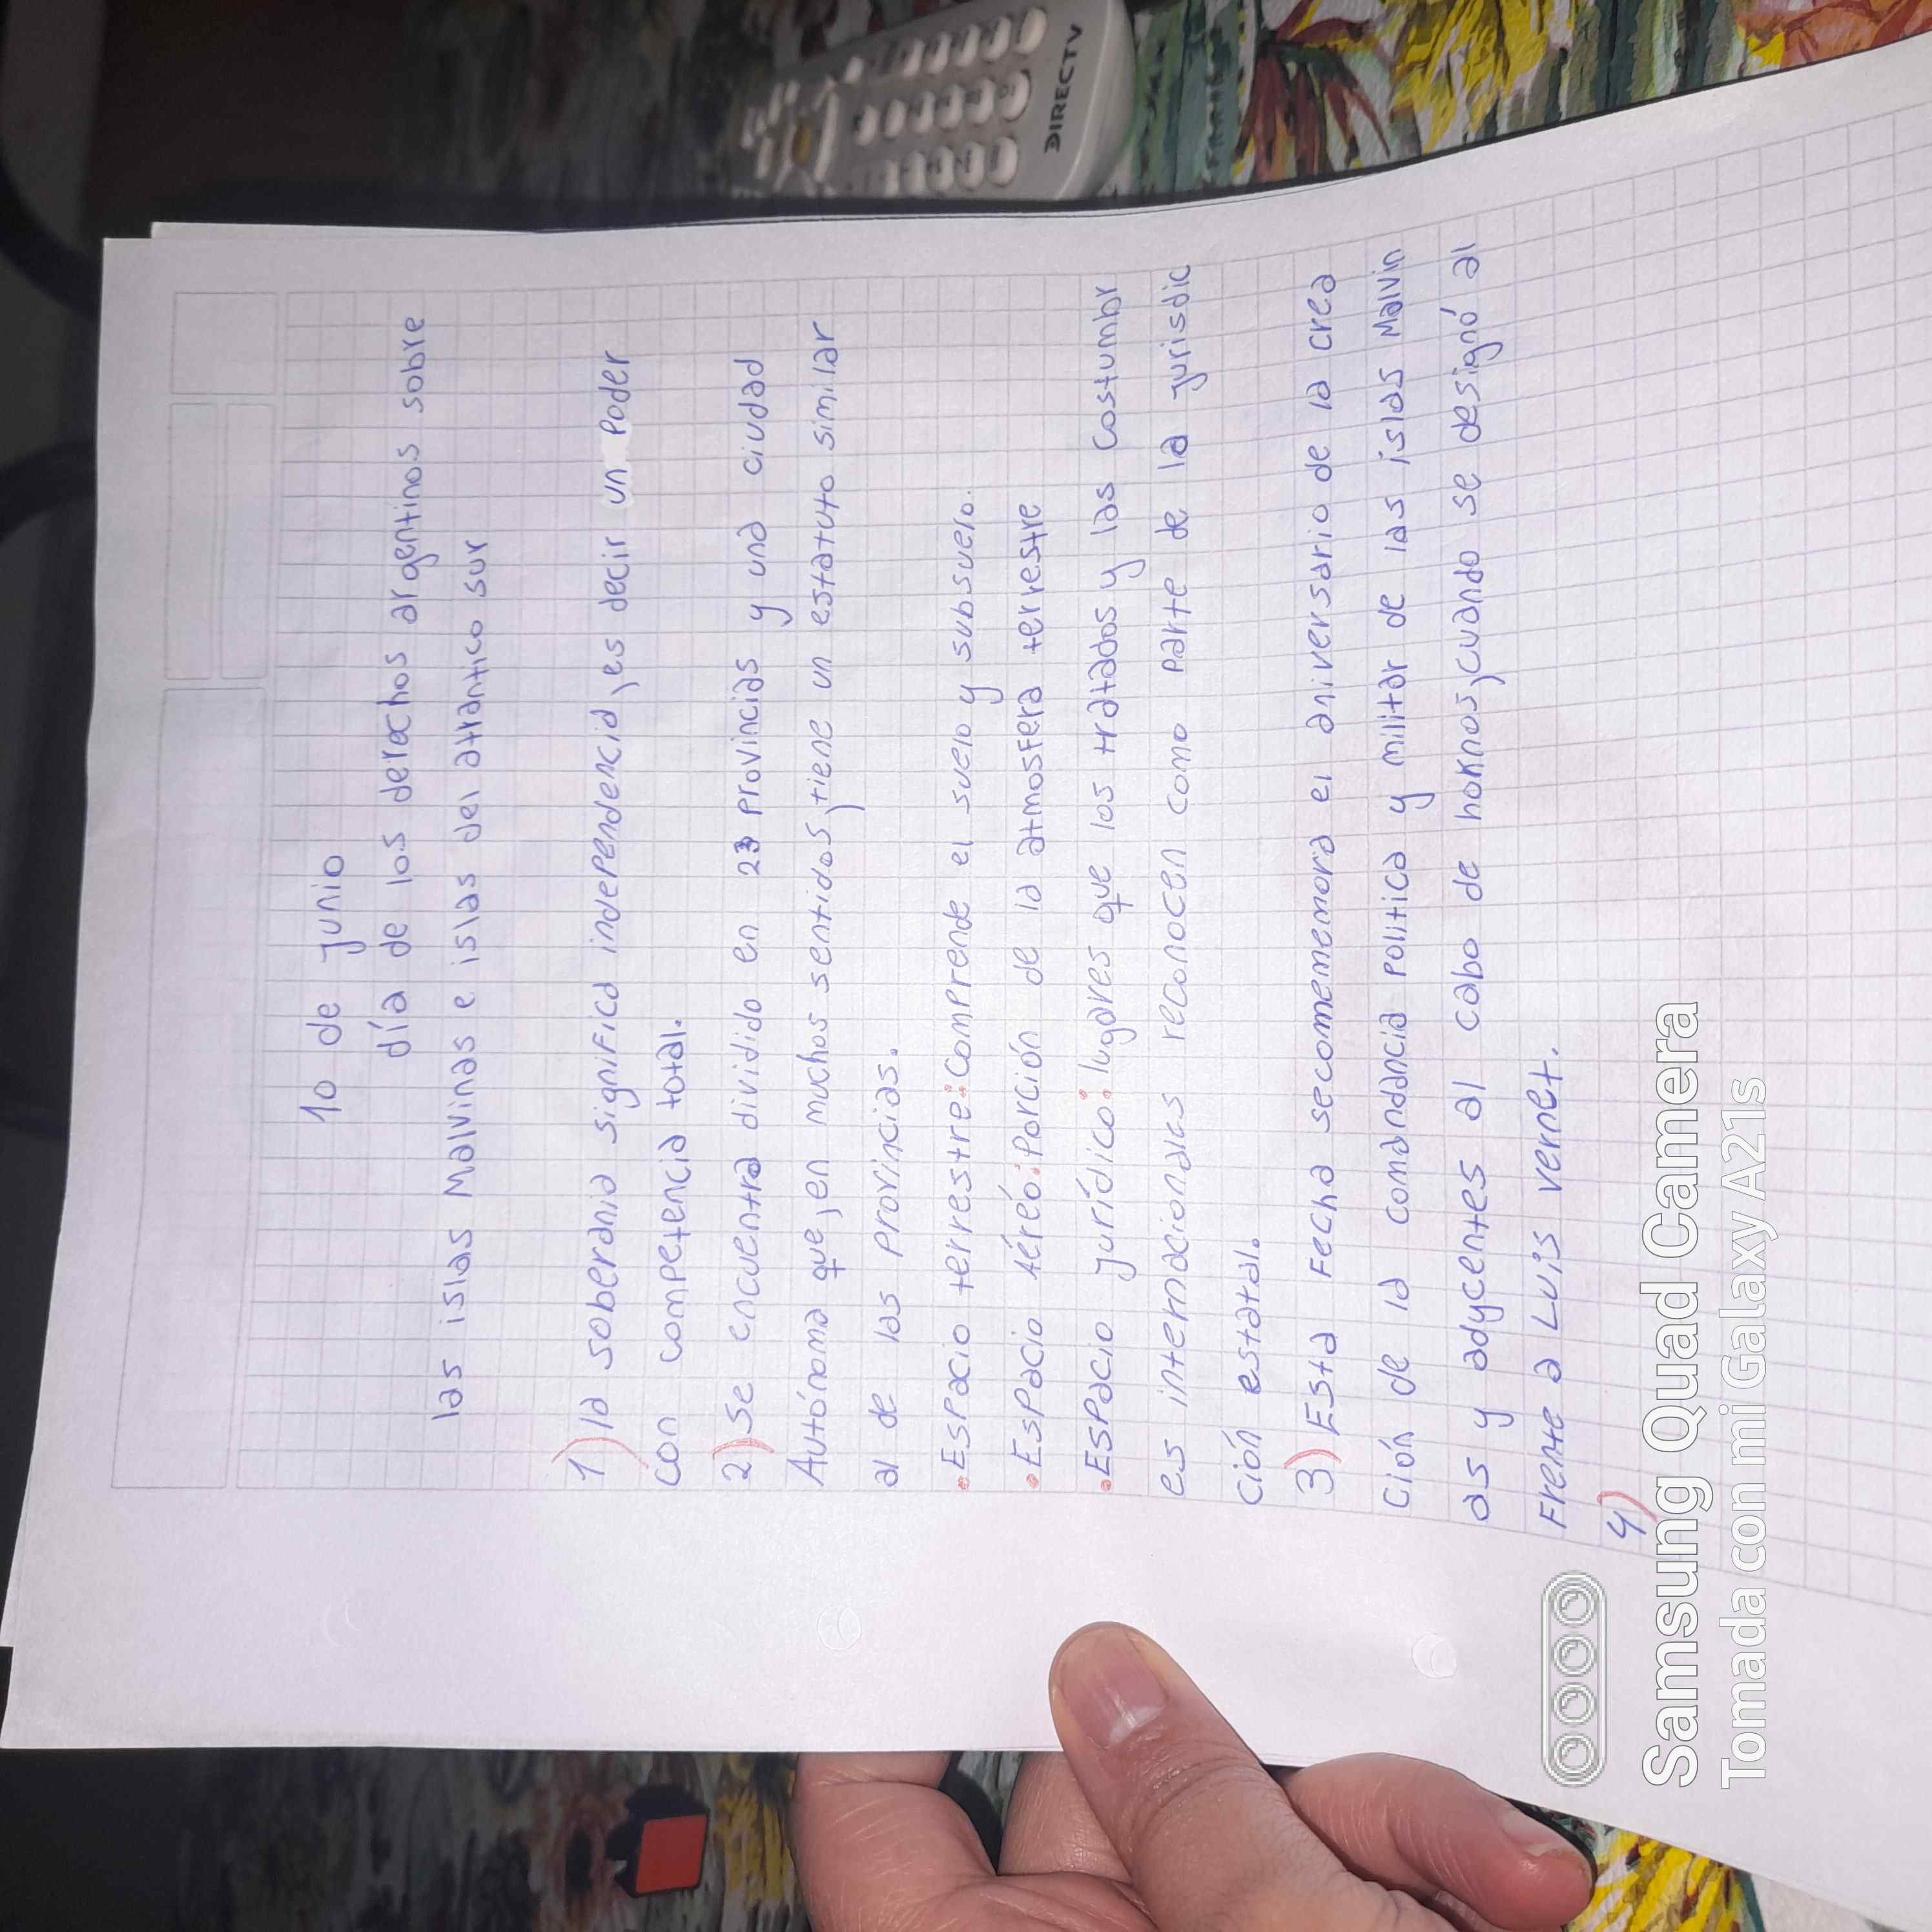 10 de junio
día de los derechos argentinos sobre
las islas Malvinas e islas del atrantico sur
1) la soberania significa independencia, es decir un poder
con competencia total.
2) se encuentra dividido en 23 provincias y una ciudad
Autónoma que, en muchos sentidos, tiene un estatuto similar
al de las provincias.
• Espacio terrestre: comprende el suelo y subsuelo.
• Espacio Aéreó: Porción de la atmosfera terrestre
• Espacio jurídico: lugares que los tratados y las costumbr
es internacionales reconocen como parte de la jurisdic
ción estatal.
3) Esta Fecha secomememora el aniversario de la crea
ción de la comandancia politica y militar de las islas Malvin
as y adycentes al cabo de hornos, cuando se designó al
Frente a Luis vernet.
4)
Samsung Quad Camera
Tomada con mi Galaxy A21s
DIRECTV